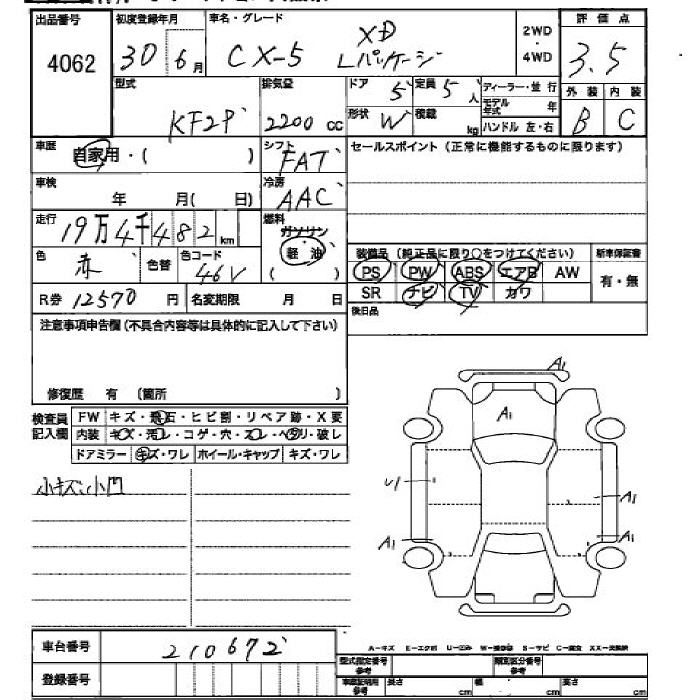 出品番号 初度登録年月 車名・グレード 2WD・4WD 評価点
4062 30 6月 CX-5 XD Lパッケージ 3.5
型式 排気量 ドア 5 定員 5人 ディーラー・並行 外装 内装
KF2P 2200cc 形状 W 積載 kg モデル年式 年 B C
ハンドル 左・右
車歴 自家用・( ) シフト FAT セールスポイント (正常に機能するものに限ります)
車検 年 月( 日) 冷房 AAC
走行 19万4千482km 燃料 ガソリン 軽油
色 赤 色替 色コード 46V 装備品 (純正品に限り○をつけてください) 新車保証書
PS PW ABS エアB AW 有・無
R券 12570円 名変期限 月 日 SR ナビ TV カワ
注意事項申告欄(不具合内容等は具体的に記入して下さい) 後日品
修復歴 有 (箇所 )
検査員記入欄 FW キズ・飛石・ヒビ割・リペア跡・X要
内装 キズ・汚レ・コゲ・穴・スレ・ヘタリ・破レ
ドアミラー キズ・ワレ ホイール・キャップ キズ・ワレ
小キズ、小凹
A1
A1
U1 A1
A1 A1
車台番号 210672
A-キズ E-エクボ U-凹み S-サビ C-腐食 XX-交換済
登録番号 型式指定番号 参考 類別区分番号 参考
参考 長さ cm 幅 cm 高さ cm